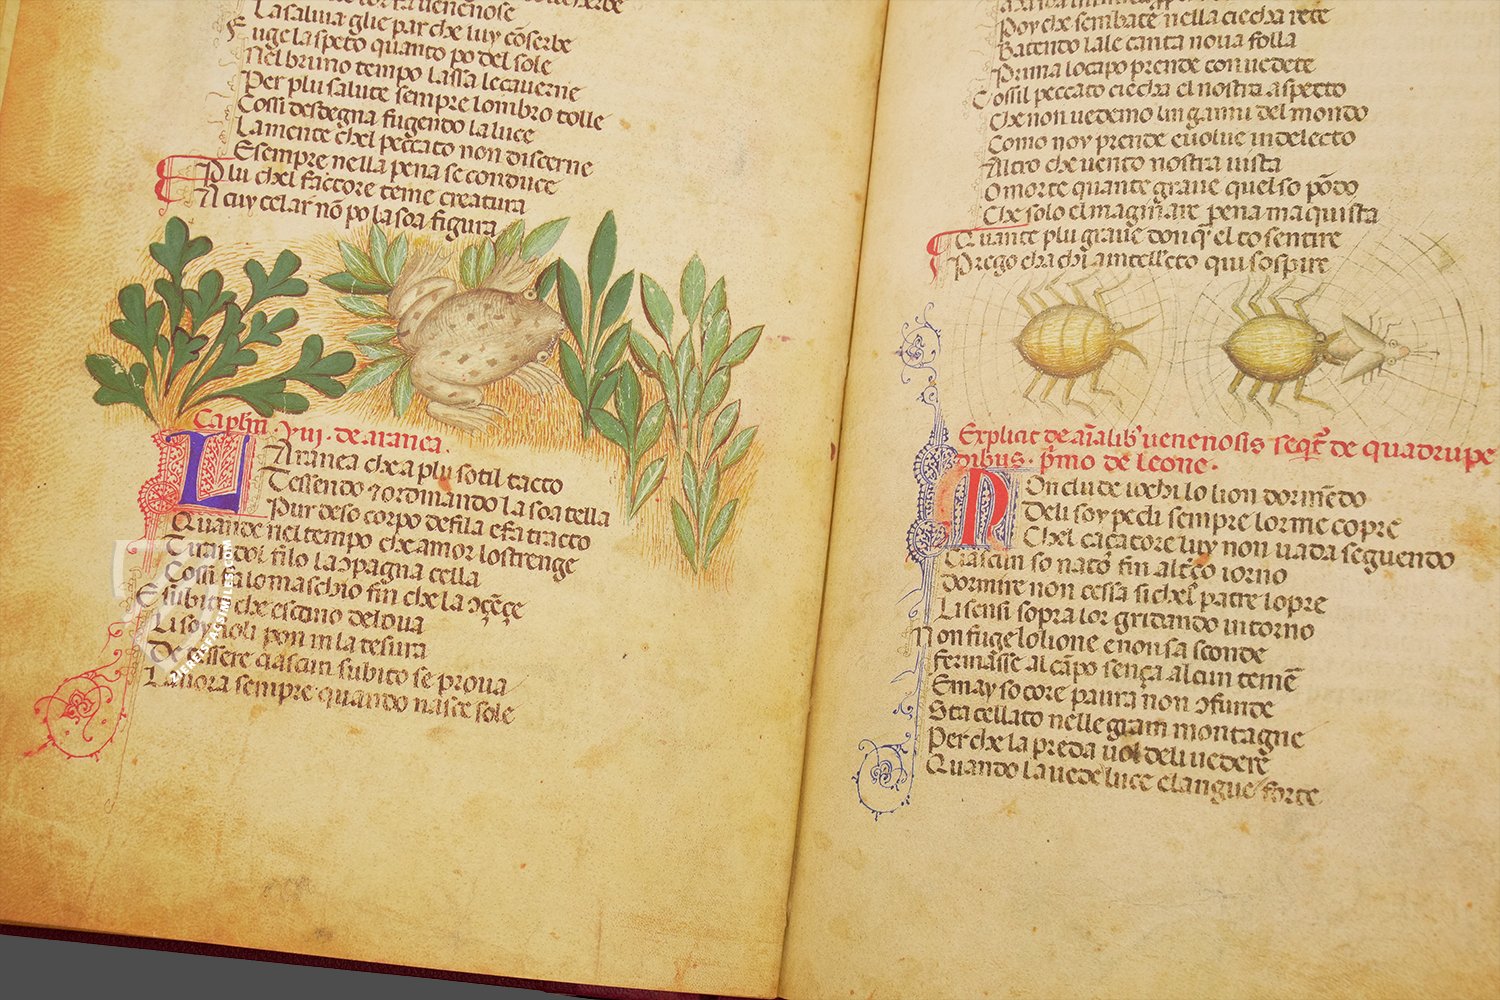 La salvia glie par che luy cōserbe
Fuge laspeto quanto po del sole
Nel bruno tempo lassa le caverne
Per plu salute sempre lombro tolle
Cossi desdegna fugendo la luce
La mente chel peccato non discerne
E sempre nella pena se conduce
Plu chel factore teme creatura
A cuy celar nō po la soa figura
Caplm . VIII . de aranea .
L Aranea che a plu sotil tacto
Tessendo ⁊ ordinando la soa tella
Pur de so corpo de fila e fa tracto
Quande nel tempo che amor lo strenge
Tiran dol filo la ↄpagna cella
Cossi fa lo maschio fin che la ↄçēçe
E subito che escono de lova
Li soy fioli pon in la tesura
De tessere ciascun subito se prova
Lavora sempre quando nasce sole
Poy che se mbate nella ciecha rete
Batendo lale canta nova folla
Prima lo capo prende con vedete
Cossil peccato ciecha el nostro aspecto
Che non vedemo linganni del mondo
Como noy prende e volve in delecto
Altro che vento nostra vista
O morte quante grave quel so pōdo
Che solo el maginare pena maquista
Quante plu grave donq̄ el to sentire
Prego cha chi a intellecto qui sospire
Explicit de aīalib' venenosis seqt̄ de quadrupe
dibus . p̄mo de leone .
D On clude iochi lo lion dormēdo
Deli soy pedi sempre lorme copre
Chel caçatore luy non vada seguendo
Ciascun so nato fin al tço iorno
dormire non cessa sichel patre lopre
Li sensi sopra lor gridando intorno
Non fuge lo lione e non sa sconde
fermasse al cāpo sença alcun temē
E may so core paura non ↄfunde
Sta cellato nelle gram montagne
Per che la preda vol deli vedere
Quando la vede luce el angue forte